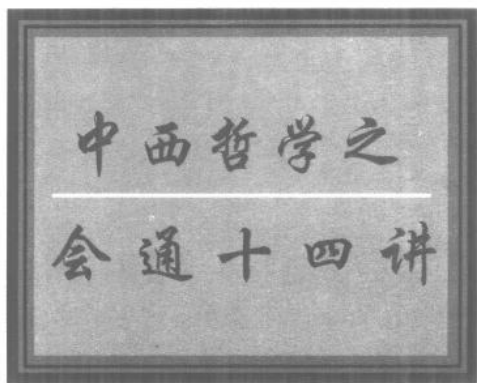 中西哲学之
会通十四讲